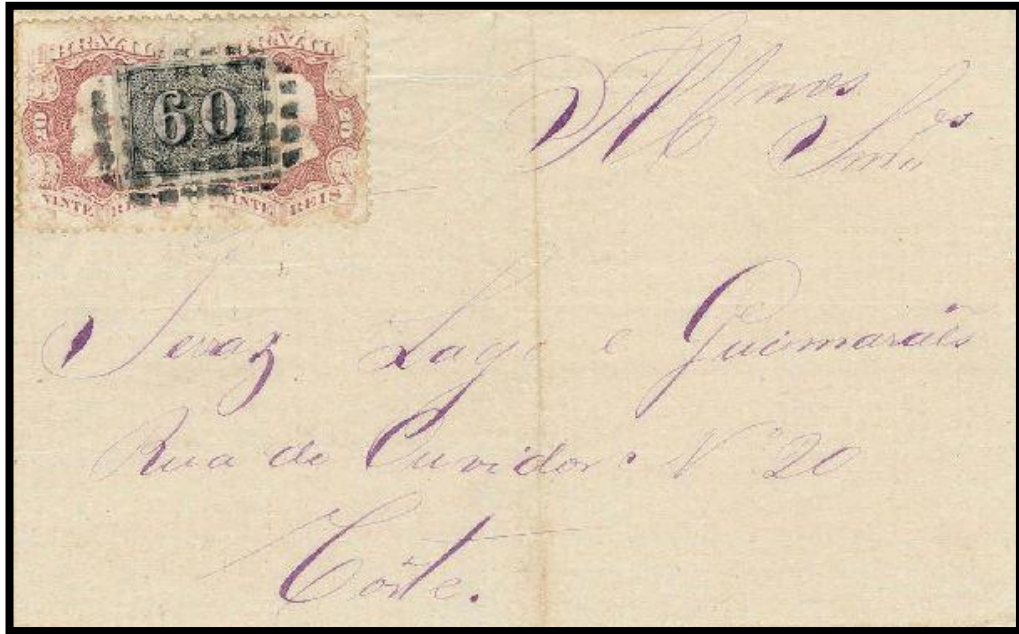 BRAZIL BRAZIL
20 60 20
VINTE REIS VINTE REIS
Illmos Snres
Lage e Guimarães
Rua do Ouvidor Nº 20
Côrte.